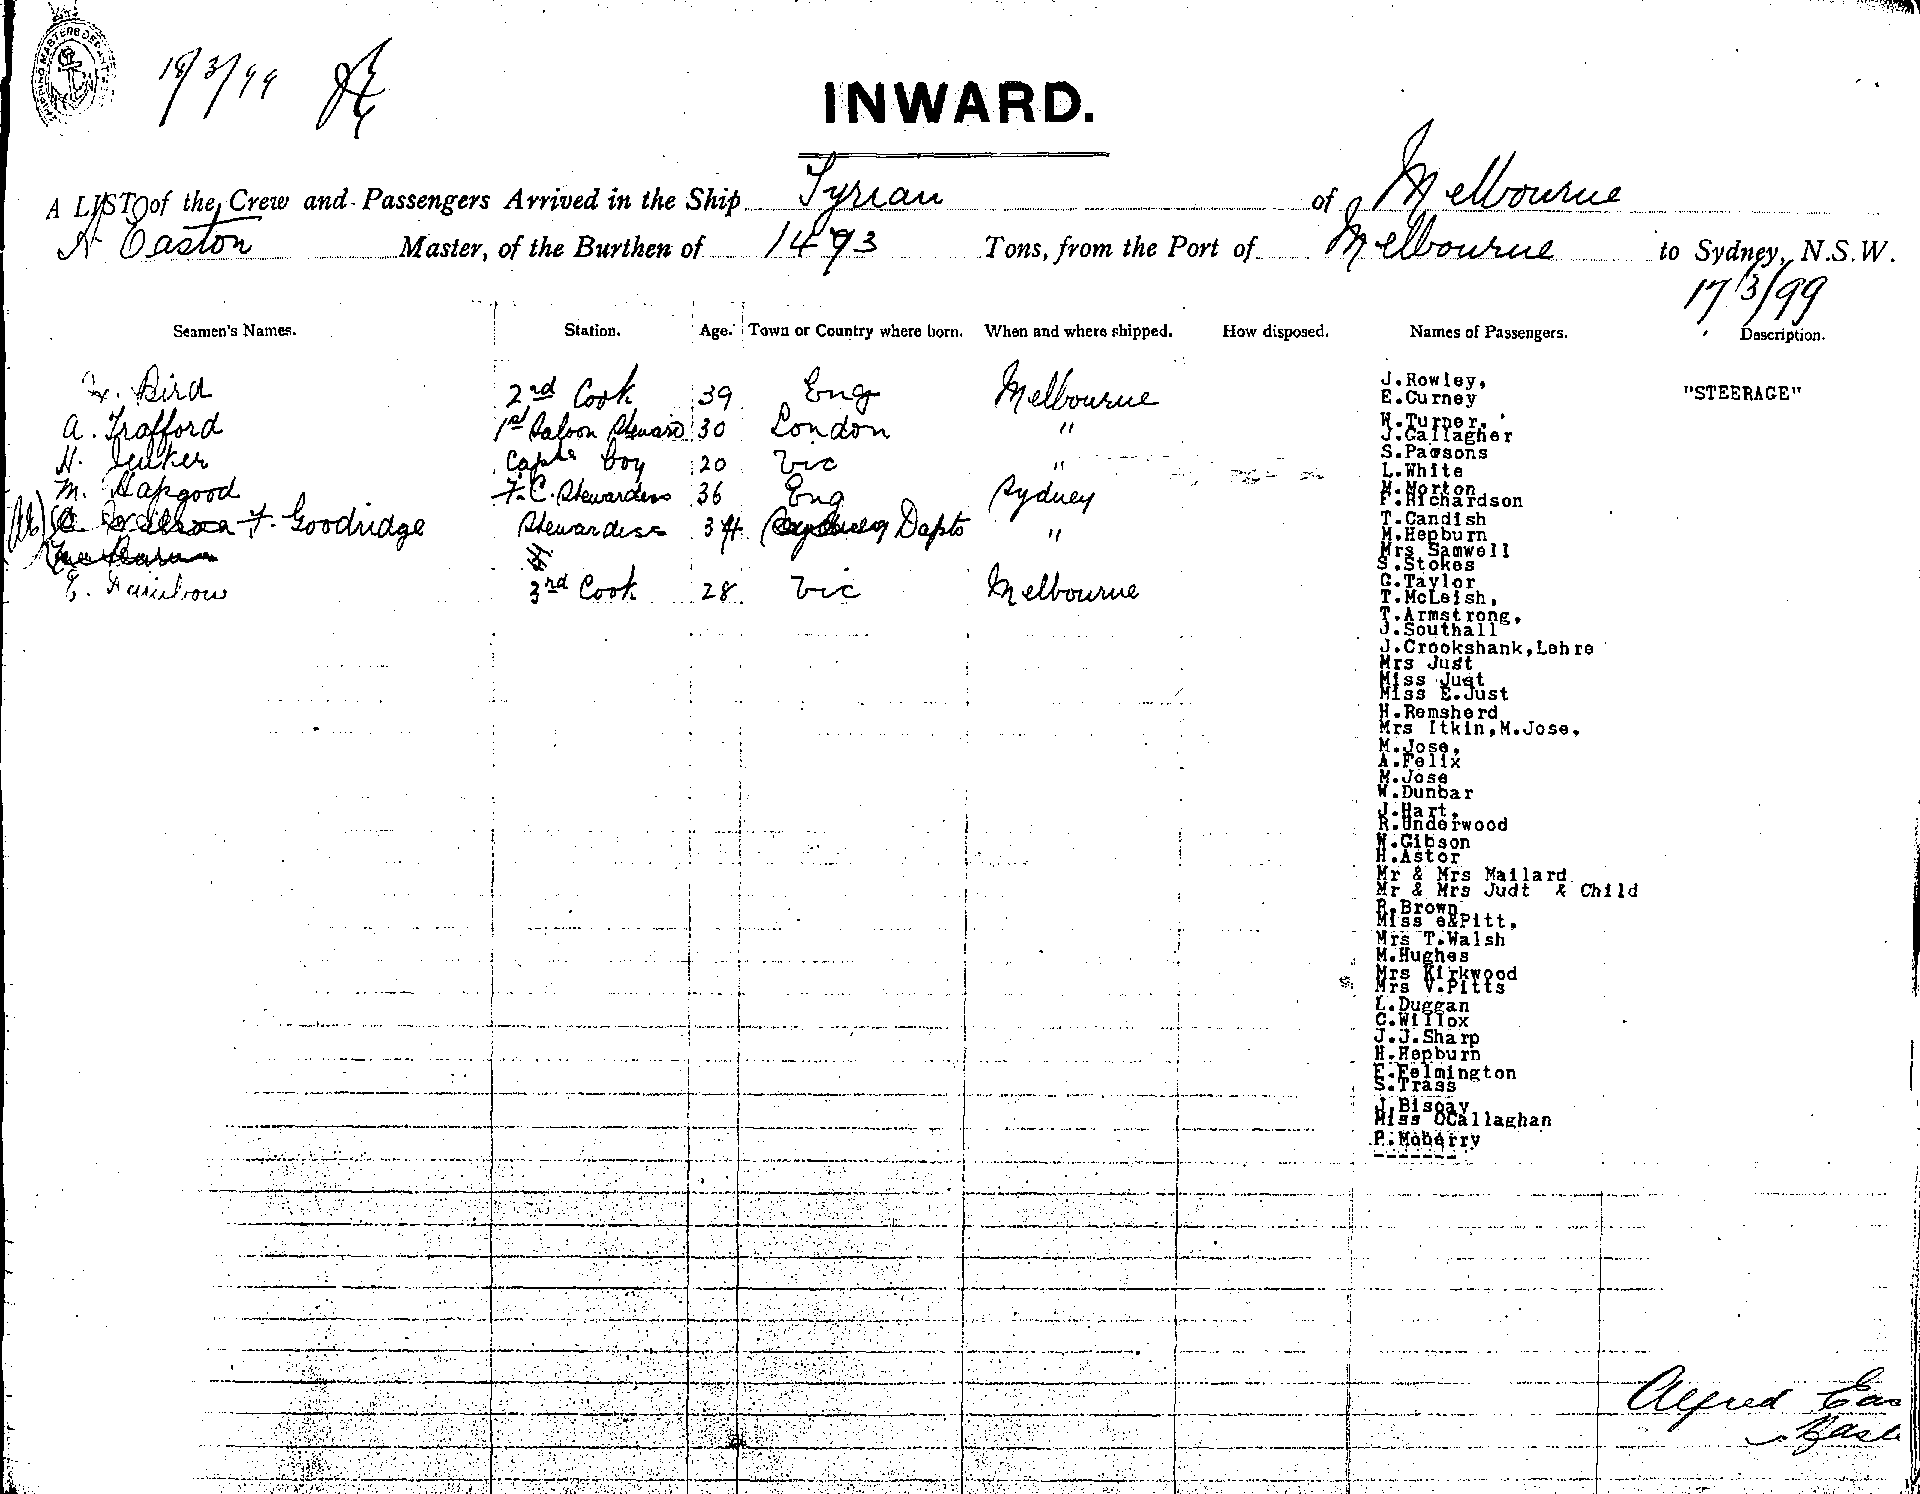 18/3/99
INWARD.
A LIST of the Crew and Passengers Arrived in the Ship Tyrian of Melbourne
A Easton Master, of the Burthen of 1493 Tons, from the Port of Melbourne to Sydney, N.S.W.
17/3/99
Seamen's Names. Station. Age. Town or Country where born. When and where shipped. How disposed. Names of Passengers. Description.
Bird 2nd Cook 39 Eng Melbourne
A. Trafford 1st Saloon Steward 30 London "
H. Capts boy 20 Vic "
M. Hapgood F.C. Stewardess 36 Eng Sydney
F. Goodridge Stewardess 34 Dapto "
E. Rainbow 3rd Cook 28 Vic Melbourne
J.Rowley,
"STEERAGE"
E.Curney
W.Turner.
J.Gallagher
S.Pawsons
L.White
M.Morton
F.Richardson
T.Candish
M.Hepburn
Mrs Samwell
S.Stokes
G.Taylor
T.McLeish,
T.Armstrong,
J.Southall
J.Crookshank,Lehre
Mrs Just
Miss Just
Miss E.Just
H.Remsherd
Mrs Itkin,M.Jose,
M.Jose,
A.Felix
M.Jose
W.Dunbar
J.Hart,
R.Underwood
W.Gibson
H.Astor
Mr & Mrs Mailard
Mr & Mrs Judt & Child
R.Brown
Miss e&Pitt,
Mrs T.Walsh
M.Hughes
Mrs Kirkwood
Mrs V.Pitts
L.Duggan
C.Willox
J.J.Sharp
H.Hepburn
E.Felmington
S.Trass
J.Biscay
Miss OCallaghan
P.Moberry
Alfred Eas